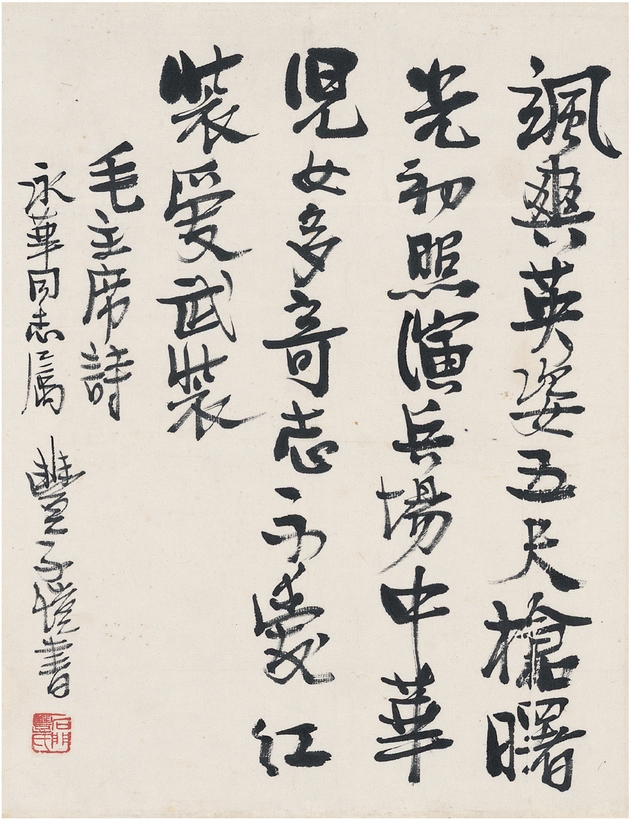 颯爽英姿五尺槍曙
光初照演兵場中華
児女多奇志不愛红
裝爱武裝
毛主席詩
永華同志属 豐子愷書
石門豐氏